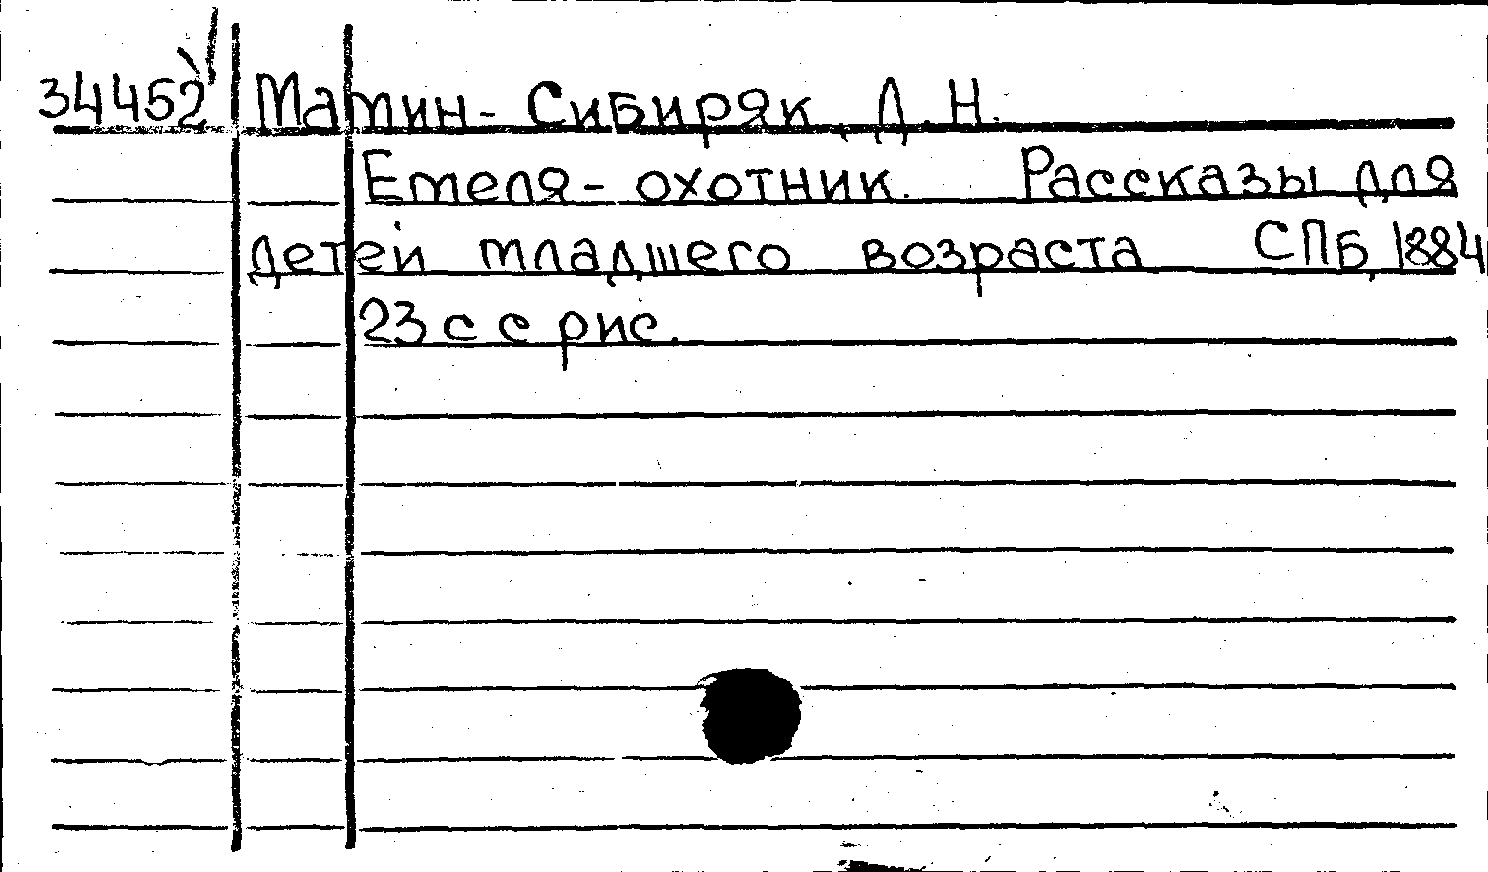 34452 Мамин-Сибиряк, Д.Н.
Емеля-охотник. Рассказы для
детей младшего возраста СПБ, 1884
23 с с рис.